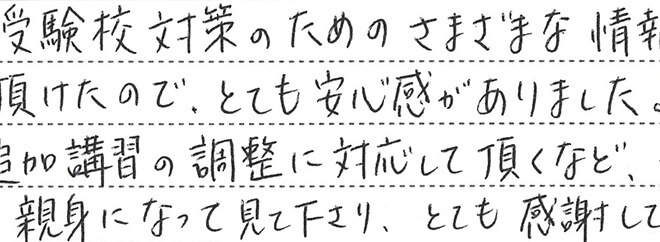 受験校対策のためのさまざまな情報
頂けたので、とても安心感がありました。
追加講習の調整に対応して頂くなど、
親身になって見て下さり、とても感謝して